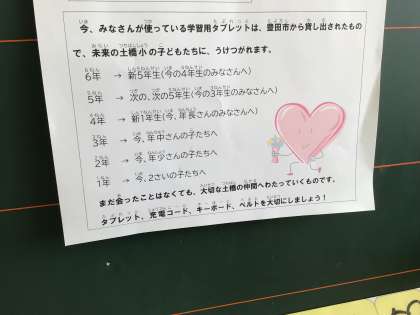 今、みなさんが使っている学習用タブレットは、豊田市から貸し出されたもの
で、未来の土橋小の子どもたちに、うけつがれます。
6年 → 新5年生(今の4年生のみなさんへ)
5年 → 次の、次の5年生(今の3年生のみなさんへ)
4年 → 新1年生(今、年長さんのみなさんへ)
3年 → 今、年中さんの子たちへ
2年 → 今、年少さんの子たちへ
1年 → 今、2さいの子たちへ
まだ会ったことはなくても、大切な土橋の仲間へわたっていくものです。
タブレット、充電コード、キーボード、ベルトを大切にしましょう！